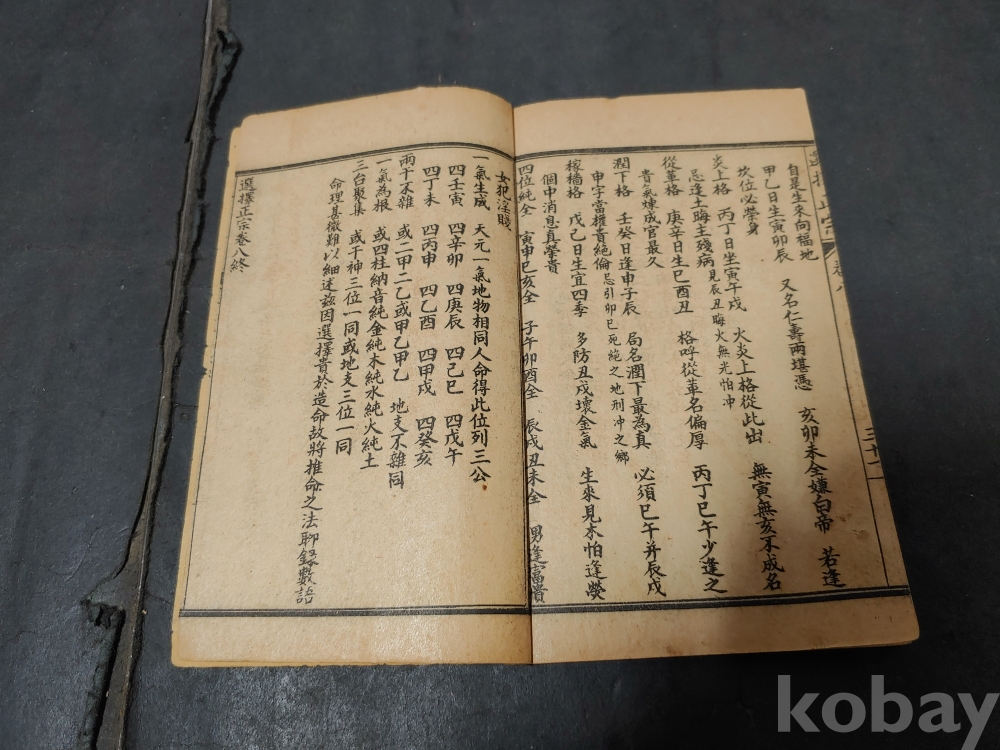 自是生來向福地
甲乙日生寅卯辰 又名仁壽兩堪憑 亥卯未全嫌白帝 若逢
坎位必榮身
炎上格 丙丁日坐寅午戌 火炎上格從此出 無寅無亥不成名
忌逢土晦主殘病見辰丑晦火無光怕冲
從革格 庚辛日生巳酉丑 格呼從革名偏厚 丙丁巳午少逢之
貴氣煉成官最久
潤下格 壬癸日逢申子辰 局名潤下最為真 必須巳午并辰戌
申字當權貴絶倫忌引卯巳死絶之地刑冲之鄉
稼穡格 戊己日生宜四季 多防丑戌壞金氣 生來見木怕逢熒
個中消息真榮貴
四位純全 寅申巳亥全 子午卯酉全 辰戌丑未全 男逢富貴
女犯淫賤
一氣生成 天元一氣地物相同人命得此位列三公
四壬寅 四辛卯 四庚辰 四己巳 四戊午
四丁未 四丙申 四乙酉 四甲戌 四癸亥
兩干不雜 或二甲二乙或甲乙甲乙 地支不雜同
一氣為根 或四柱納音純金純木純水純火純土
三台聚集 或干神三位一同或地支三位一同
命理甚微難以細述茲因選擇貴於造命故將推命之法聊錄數語
選擇正宗卷八終
三十一
kobay